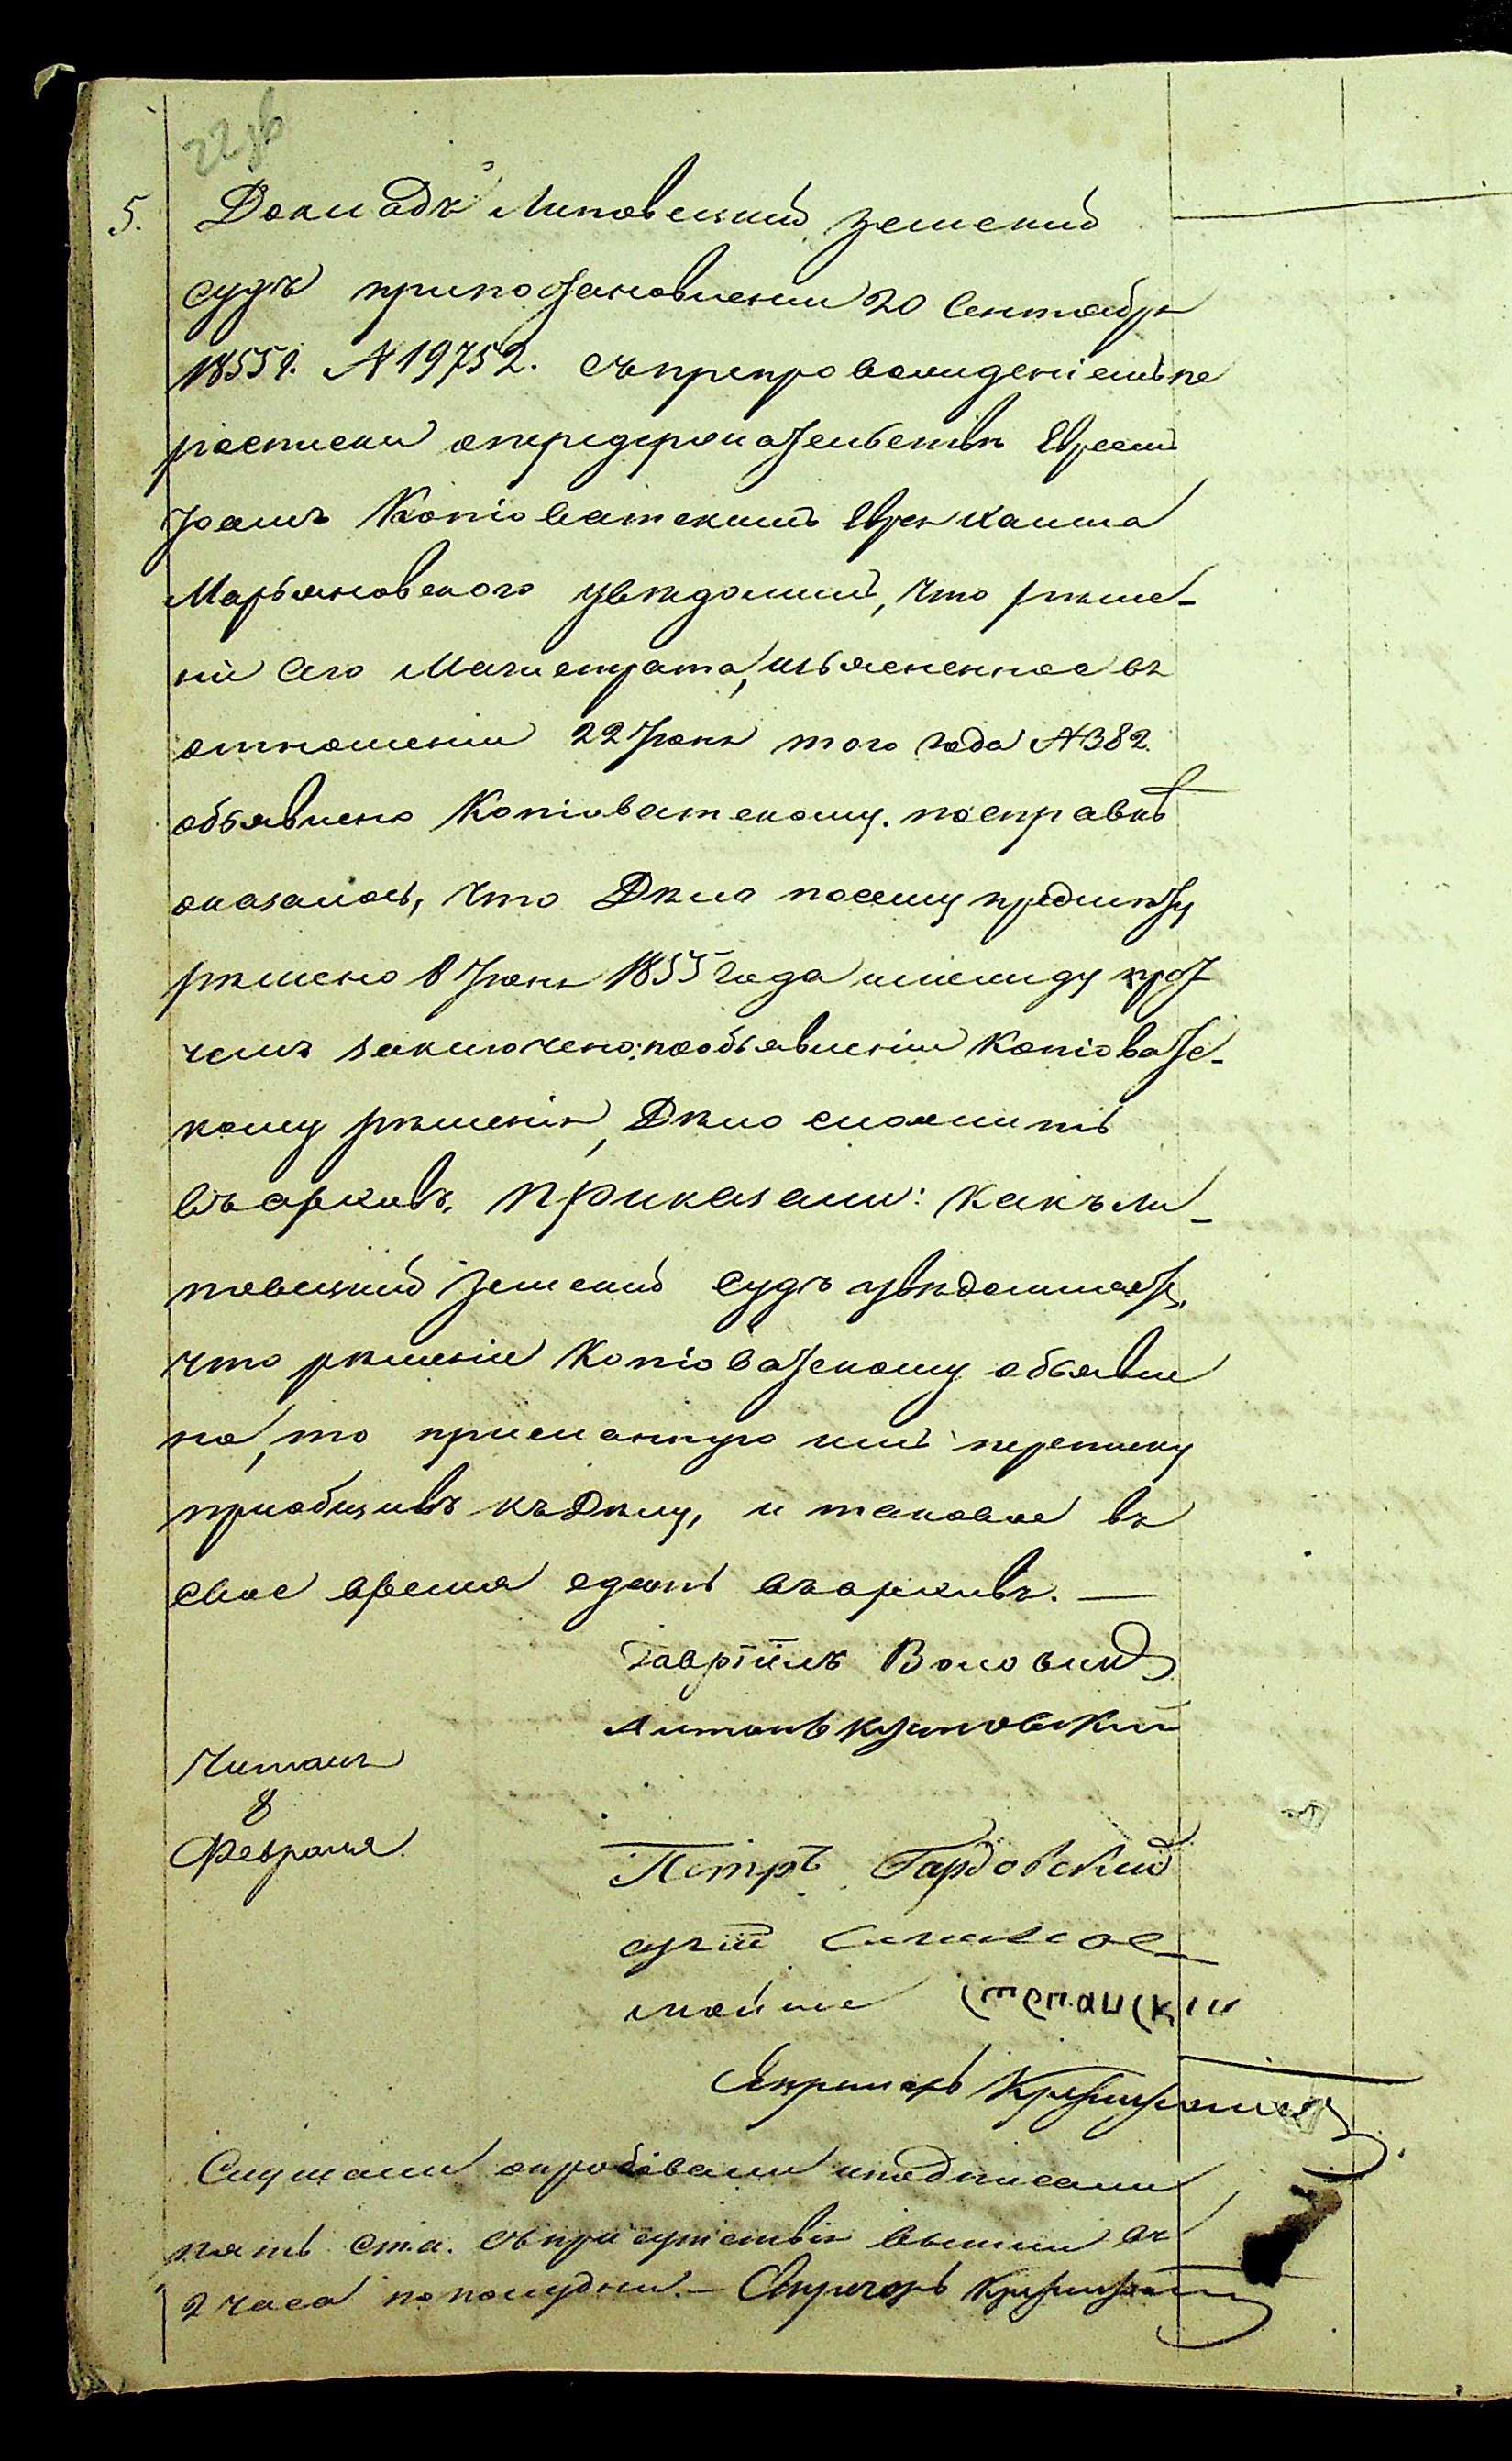 22 об
5. Докладъ Липовецкій Земскій
судъ припостановленіи 20 Сентября
1855 г. № 19752. съпрепровожденіемъ пе
реписки опередержательствѣ Евреемъ
Іоемъ Копіоватскимъ Еврея Хаима
Марьяновского увѣдомилъ, что рѣше-
ніе Сего Магистрата, изъясненное въ
отношеніи 22 Іюня того года № 382.
объявлено Копіоватскому. посправкѣ
оказалось, что Дѣло посему предмѣту
рѣшено 8 Іюня 1855 года имежду прот
чемъ заключено: пообъявленіи Копіоватс-
кому рѣшенія, Дѣло счислить
въархивъ. Приказали: какъ Ли-
повецкій Земскій Судъ увѣдомляетъ,
что рѣшеніе Копіоватскому объявле
но, то присланную имъ переписку
приобщивъ къДѣлу, и таковое въ
свое время сдать въархивъ. —
Гавріилъ Воловик
Антонъ кутовский
Читалъ
8
Февраля.
Петръ Гардовский
мойше
Секретарь
Слушали опробовали иподписали
пять ст.а. съприсутствія вышли въ
2 часа пополудни. — Секретарь